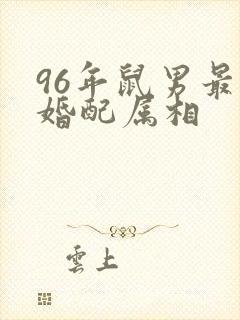 96年鼠男最
婚配属相
雲上